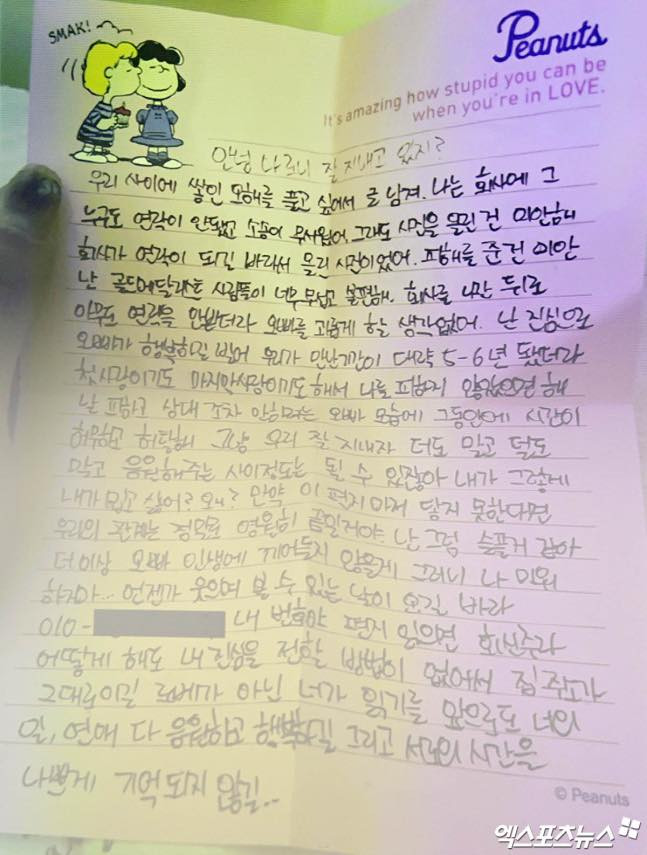 SMAK!
Peanuts
It's amazing how stupid you can be
when you're in LOVE.
안녕 나 잘 지내고 있지?
우리 사이에 쌓인 오해를 풀고 싶어서 글 남겨. 나는 회사에 그
누구도 연락이 안됐고 소송이 무서웠어. 그래도 사진을 올린 건 미안해
회사가 연락이 되길 바라서 올린 사진이었어. 피해를 준건 미안
난 골드메달리스트 사람들이 너무 무섭고 불편해. 회사를 나간 뒤로
아무도 연락을 안받더라 오빠를 괴롭게 할 생각없어. 난 진심으로
오빠가 행복하길 빌어 우리가 만난기간이 대략 5-6년 됐더라
첫사랑이기도 마지막사랑이기도 해서 나를 피하지 않았으면 해
날 피하고 상대 조차 안하려는 오빠 모습에 그동안에 시간이
허무하고 허탈해 그냥 우리 잘 지내자 더도 말고 덜도
말고 응원해주는 사이정도는 될 수 있잖아 내가 그렇게
내가 밉고 싫어? 왜? 만약 이 편지마저 닿지 못한다면
우리의 관계는 정말로 영원히 끝일거야. 난 그럼 슬플거 같아
더이상 오빠 인생에 끼어들지 않을게 그러니 나 미워
하지마.. 언젠가 웃으며 볼 수 있는 날이 오길 바라
010- 내 번호야 편지 읽으면 회신주라
어떻게 해도 내 진심을 전할 방법이 없어서 집 주소가
그대로이길 로베가 아닌 너가 읽기를 앞으로도 너의
일, 연애 다 응원하고 행복하길 그리고 서로의 시간을
나쁘게 기억되지 않길..
© Peanuts
엑스포츠뉴스